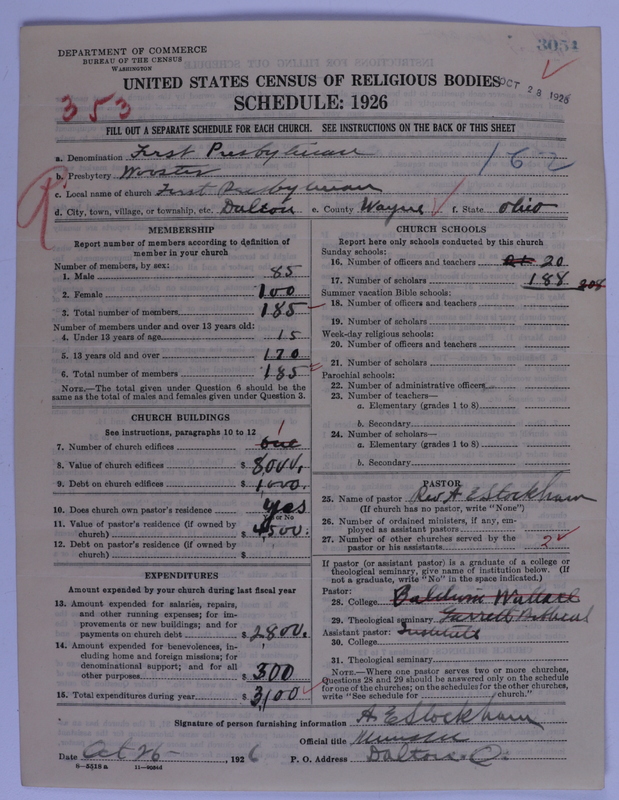 3054
DEPARTMENT OF COMMERCE
BUREAU OF THE CENSUS
WASHINGTON
UNITED STATES CENSUS OF RELIGIOUS BODIES
OCT 28 1926
SCHEDULE: 1926
353
FILL OUT A SEPARATE SCHEDULE FOR EACH CHURCH. SEE INSTRUCTIONS ON THE BACK OF THIS SHEET
a. Denomination First Presbyterian
162
b. Presbytery Wooster
c. Local name of church First Presbyterian
d. City, town, village, or township, etc. Dalton e. County Wayne f. State Ohio
MEMBERSHIP
Report number of members according to definition of
member in your church
Number of members, by sex:
1. Male 85
2. Female 100
3. Total number of members 185
Number of members under and over 13 years old:
4. Under 13 years of age 15
5. 13 years old and over 170
6. Total number of members 185
NOTE.—The total given under Question 6 should be the
same as the total of males and females given under Question 3.
CHURCH BUILDINGS
See instructions, paragraphs 10 to 12
7. Number of church edifices one 1
8. Value of church edifices $ 8,000.
9. Debt on church edifices $ 1,000.
10. Does church own pastor's residence yes
Yes or No
11. Value of pastor's residence (if owned by
church) $ 4500.
12. Debt on pastor's residence (if owned by
church) $
EXPENDITURES
Amount expended by your church during last fiscal year
13. Amount expended for salaries, repairs,
and other running expenses; for im-
provements or new buildings; and for
payments on church debt $ 2800.
14. Amount expended for benevolences, in-
cluding home and foreign missions; for
denominational support; and for all
other purposes $ 300
15. Total expenditures during year $ 3,100
CHURCH SCHOOLS
Report here only schools conducted by this church
Sunday schools:
16. Number of officers and teachers 20
17. Number of scholars 188 208
Summer vacation Bible schools:
18. Number of officers and teachers
19. Number of scholars
Week-day religious schools:
20. Number of officers and teachers
21. Number of scholars
Parochial schools:
22. Number of administrative officers
23. Number of teachers—
a. Elementary (grades 1 to 8)
b. Secondary
24. Number of scholars—
a. Elementary (grades 1 to 8)
b. Secondary
PASTOR
25. Name of pastor Rev. A E Stockham
(If church has no pastor, write "None")
26. Number of ordained ministers, if any, em-
ployed as assistant pastors
27. Number of other churches served by the
pastor or his assistants 2
If pastor (or assistant pastor) is a graduate of a college or
theological seminary, give name of institution below. (If
not a graduate, write "No" in the space indicated.)
Pastor:
28. College Baldwin Wallace
29. Theological seminary Garrett Biblical
Assistant pastor: Institute
30. College
31. Theological seminary
NOTE.—Where one pastor serves two or more churches,
Questions 28 and 29 should be answered only on the schedule
for one of the churches; on the schedules for the other churches,
write "See schedule for church."
Signature of person furnishing information A E Stockham
Official title Minister
Date Oct 26 , 1926 P. O. Address Dalton O.
8-5518 a